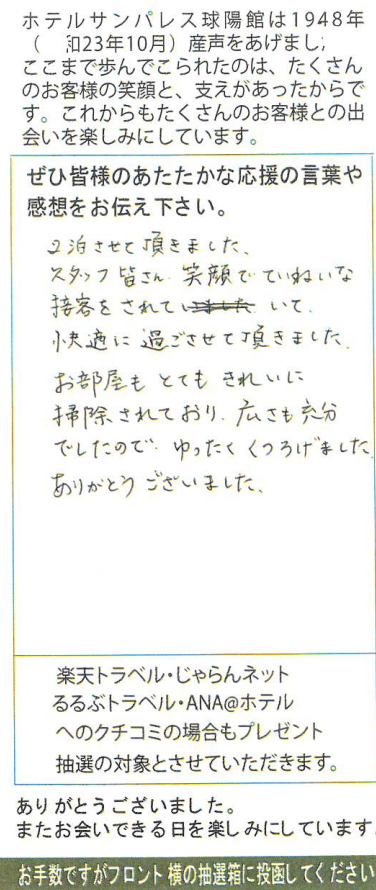 ホテルサンパレス球陽館は1948年
( 和23年10月）産声をあげまし
ここまで歩んでこられたのは、たくさん
のお客様の笑顔と、支えがあったからで
す。これからもたくさんのお客様との出
会いを楽しみにしています。
ぜひ皆様のあたたかな応援の言葉や
感想をお伝え下さい。
2泊させて頂きました、
スタッフ皆さん 笑顔で ていねいな
接客をされて いて、
快適に 過ごさせて頂きました。
お部屋も とても きれいに
掃除されており、広さも充分
でしたので、ゆったく くつろげました。
ありがとうございました。
楽天トラベル・じゃらんネット
るるぶトラベル・ANA@ホテル
へのクチコミの場合もプレゼント
抽選の対象とさせていただきます。
ありがとうございました。
またお会いできる日を楽しみにしています
お手数ですがフロント横の抽選箱に投函してください